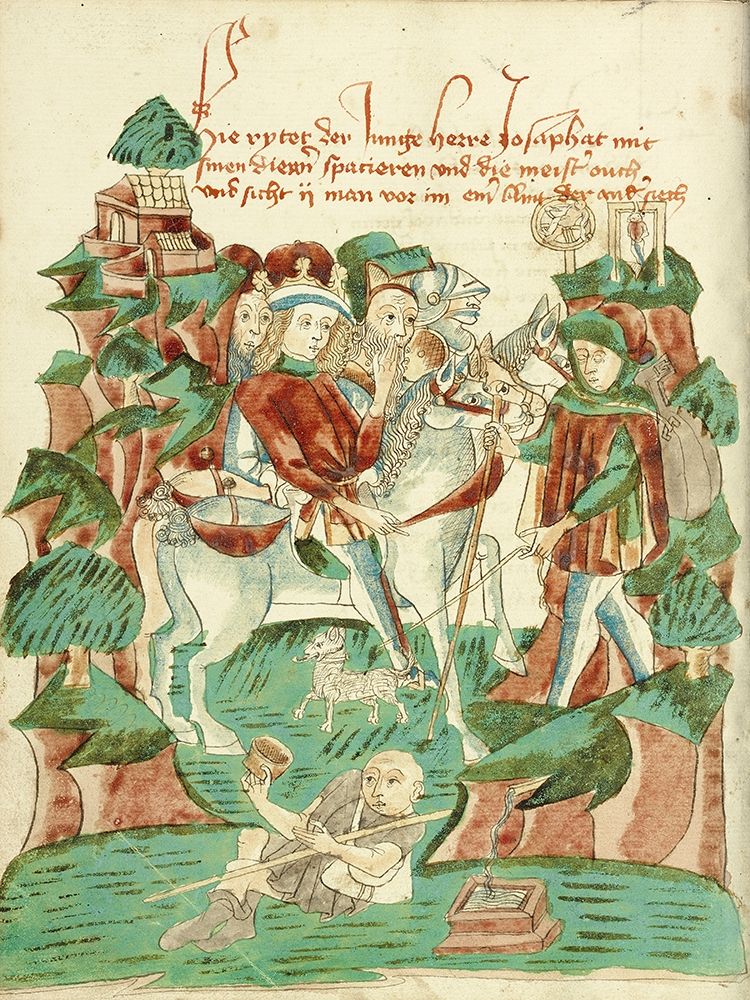 Hie rytet der Junge herre Josaphat mit
sinen dienern spacieren vnd die meist ouch
vnd sicht ij man vor im ein blint der and siech